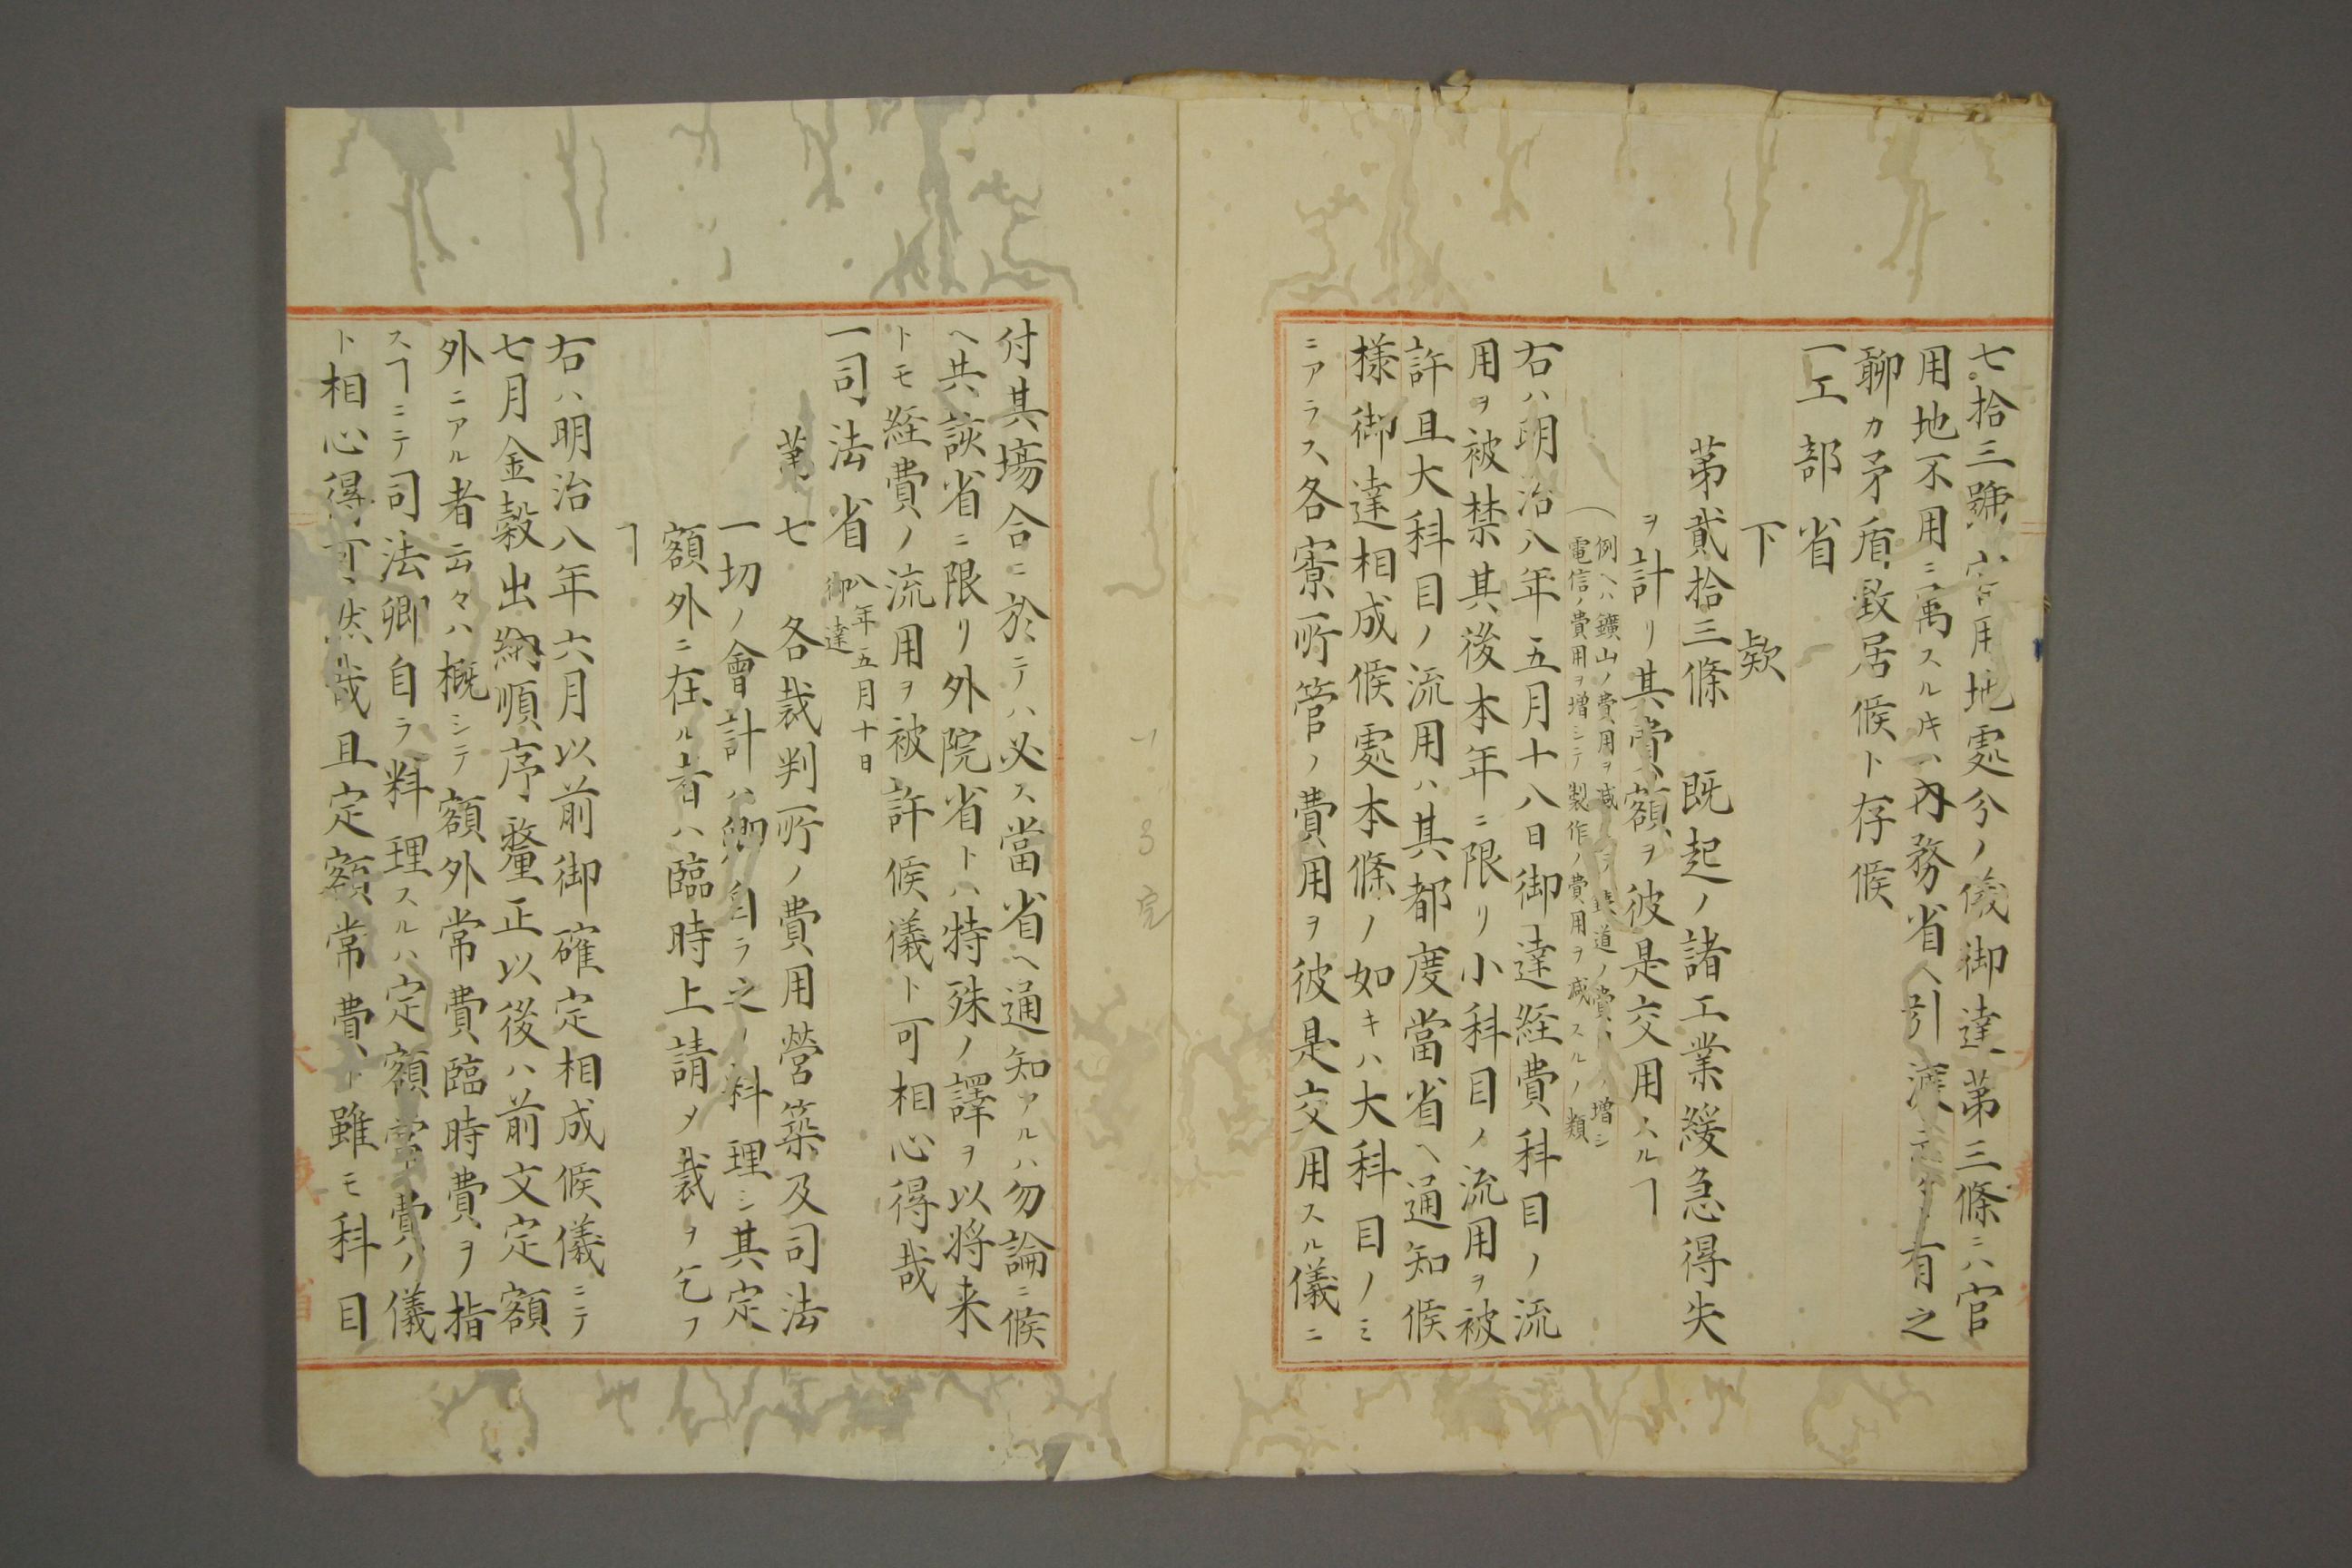 七拾三號官用地處分ノ儀御達第三條ニハ官
用地不用ニ屬スル片ハ內務省ヘ引渡云々有之
聊カ矛盾致居候ト存候
一工部省
下款
第貳拾三條 既起ノ諸工業緩急得失
ヲ計リ其費額ヲ彼是交用スルヿ
例ヘハ鑛山ノ費用ヲ減シテ鉄道ノ費用ヲ増シ
電信ノ費用ヲ増シテ製作ノ費用ヲ減スルノ類
右ハ明治八年五月十八日御達経費科目ノ流
用ヲ被禁其後本年ニ限リ小科目ノ流用ヲ被
許且大科目ノ流用ハ其都度當省ヘ通知候
様御達相成候處本條ノ如キハ大科目ノミ
ニアラス各寮所管ノ費用ヲ彼是交用スル儀ニ
付其塲合ニ於テハ必ス當省ヘ通知アルハ勿論ニ候
ヘ共該省ニ限リ外院省トハ特殊ノ譯ヲ以将来
トモ経費ノ流用ヲ被許候儀ト可相心得哉
一司法省 八年五月十日
御達
第七 各裁判所ノ費用營築及司法
一切ノ會計ハ卿自ラ之ヲ料理シ其定
額外ニ在ル者ハ臨時上請メ裁ヲ乞フ
ヿ
右ハ明治八年六月以前御確定相成候儀ニテ
七月金穀出納順序釐正以後ハ前文定額
外ニアル者云々ハ概シテ額外常費臨時費ヲ指
スヿニテ司法卿自ラ料理スルハ定額常費ノ儀
ト相心得可然哉且定額常費ト雖モ科目